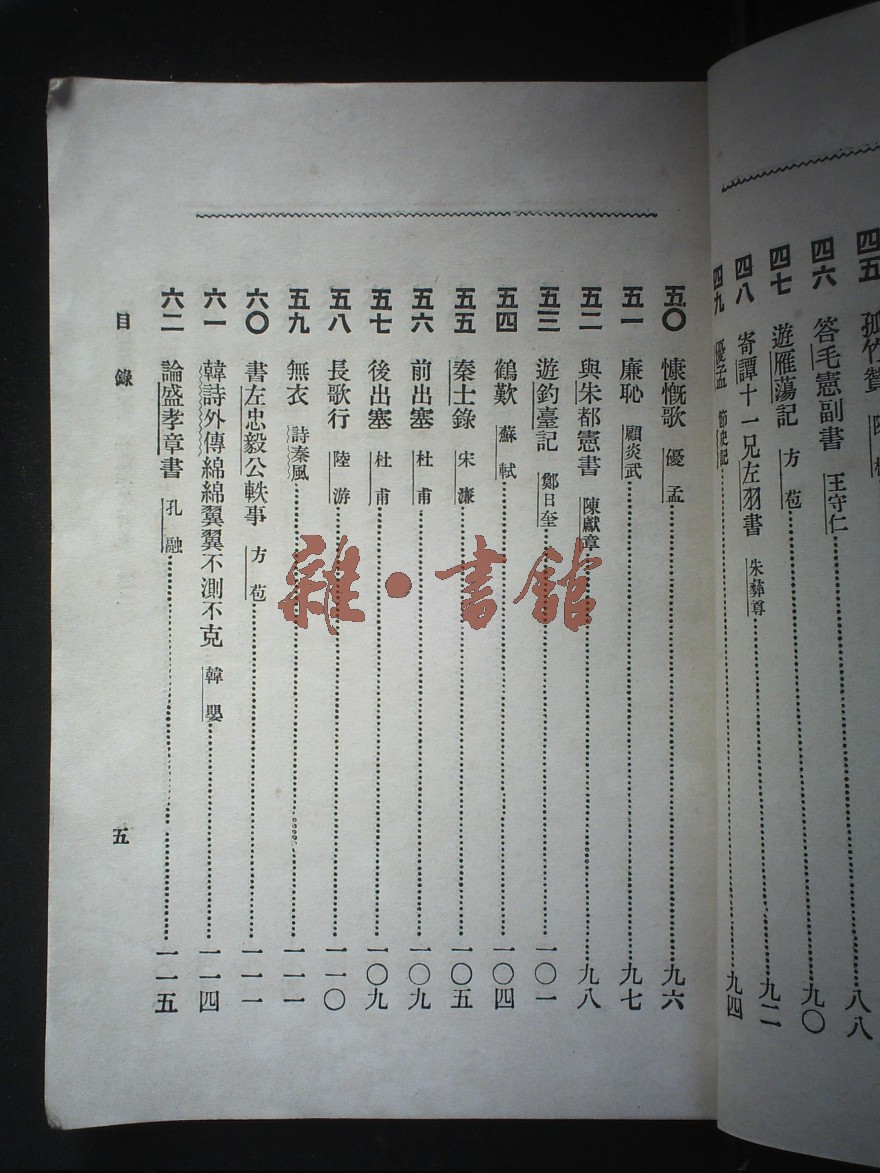 四五 孤竹贊
四六 答毛憲副書 王守仁 九〇
四七 遊雁蕩記 方苞 九二
四八 寄譚十一兄左羽書 朱彝尊
四九 優孟 節史記 九四
五〇 慷慨歌 優孟 九六
五一 廉恥 顧炎武 九七
五二 與朱都憲書 陳獻章 九八
五三 遊釣臺記 鄭日奎 一〇一
五四 鶴歎 蘇軾 一〇四
五五 秦士錄 宋濂 一〇五
五六 前出塞 杜甫 一〇九
五七 後出塞 杜甫 一〇九
五八 長歌行 陸游 一一〇
五九 無衣 詩秦風 一一一
六〇 書左忠毅公軼事 方苞 一一一
六一 韓詩外傳綿綿翼翼不測不克 韓嬰 一一四
六二 論盛孝章書 孔融 一一五
目錄
五
雜·書館